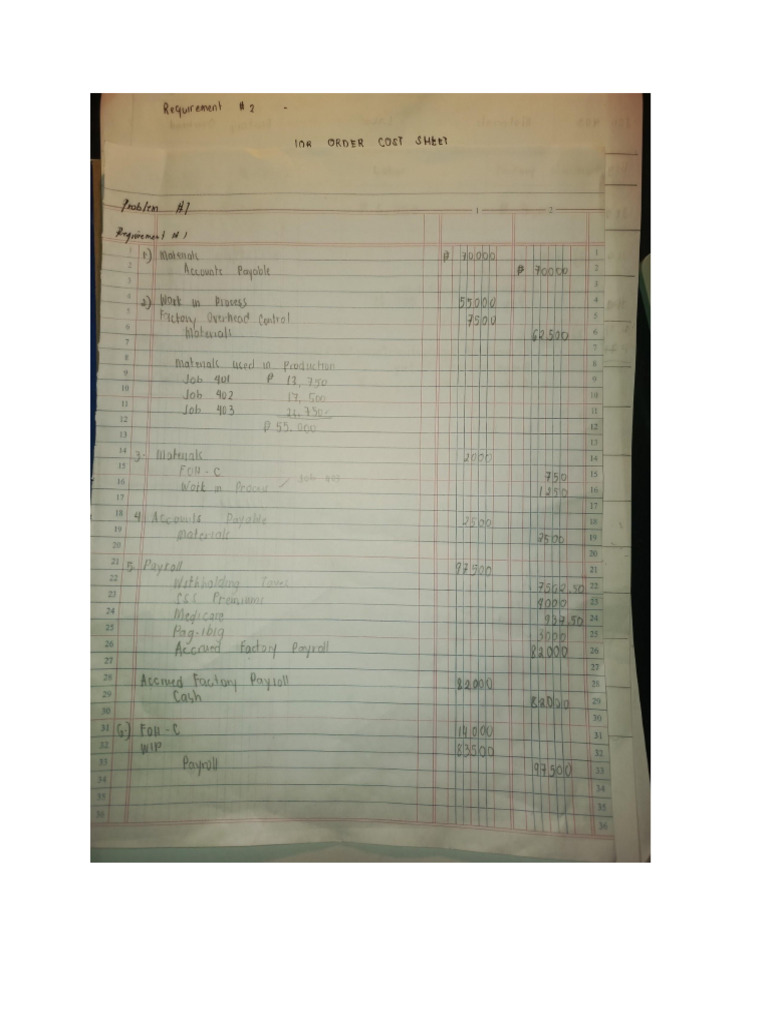 Requirement # 2 -
JOB ORDER COST SHEET
Problem #1
1 2
Requirement # 1
1 1) Materials ₱ 70000 1
2 Accounts Payable ₱ 70000 2
3 3
4 2) Work in Process 55000 4
5 Factory Overhead Control 7500 5
6 Materials 62,500 6
7 7
8 Materials used in Production 8
9 Job 401 ₱ 13,750 9
10 Job 402 17,500 10
11 Job 403 11
12 ₱ 55,000 12
13 13
14 3. Materials 2000 14
15 FOH - C 750 15
16 Work in Process Job 403 1250 16
17 17
18 4 Accounts Payable 2500 18
19 Materials 2500 19
20 20
21 5. Payroll 97500 21
22 Withholding Taxes 7562.50 22
23 Premiums 4000 23
24 Medicare 937.50 24
25 Pag-ibig 3000 25
26 Accrued Factory Payroll 82000 26
27 27
28 Accrued Factory Payroll 82000 28
29 Cash 82000 29
30 30
31 6.) FOH - C 14,000 31
32 WIP 83500 32
33 Payroll 97500 33
34 34
35 35
36 36